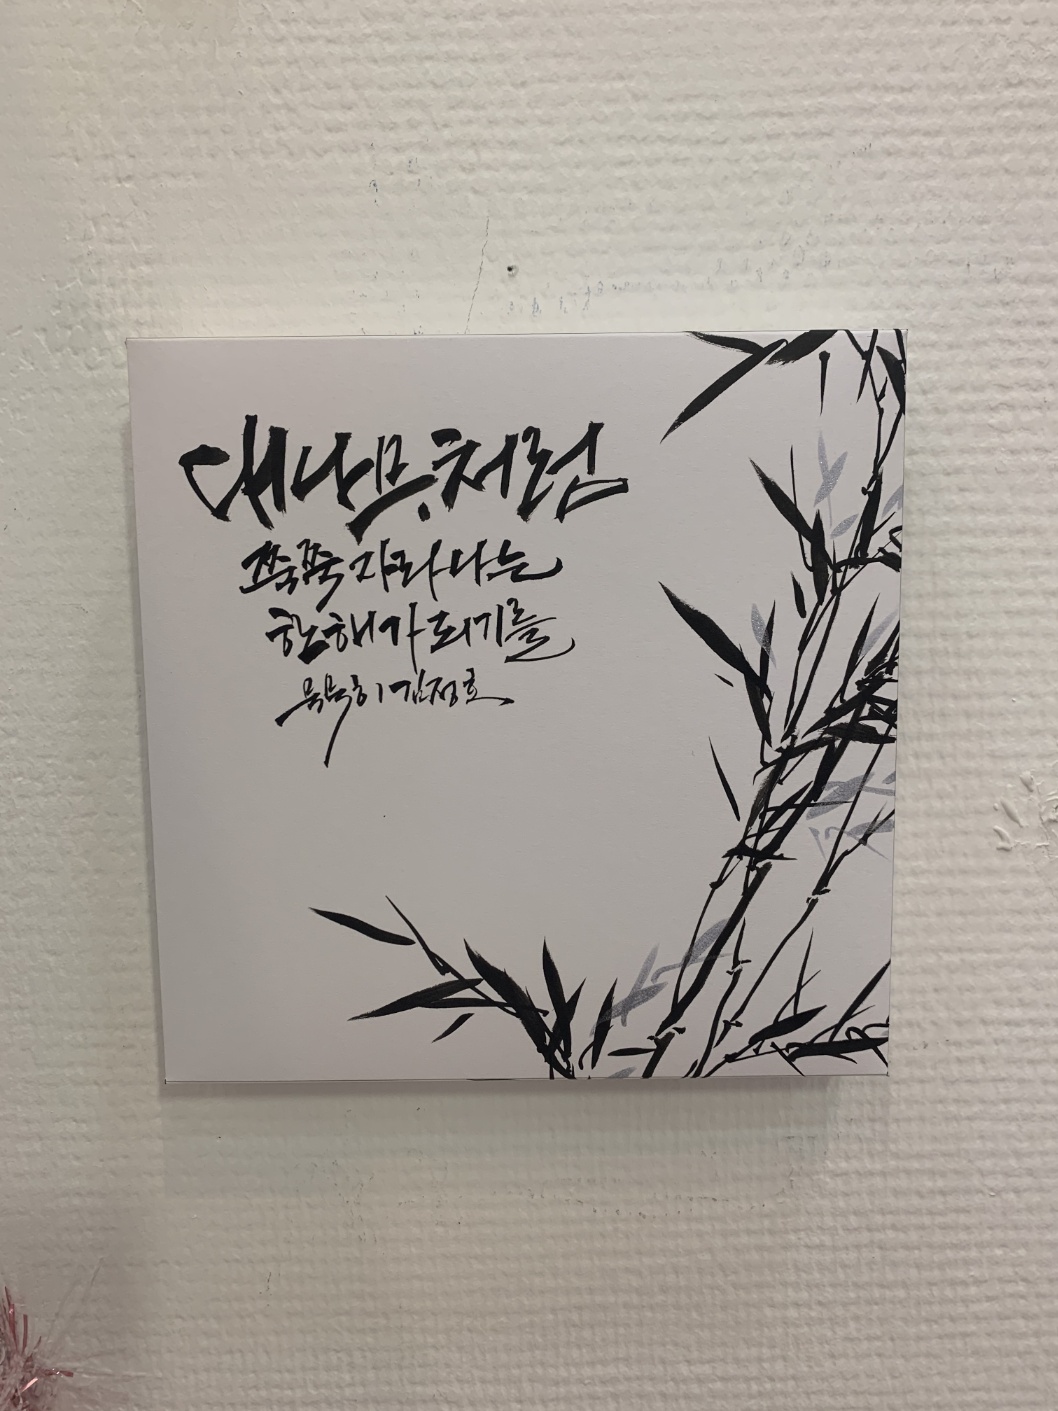 대나무처럼
쭉쭉 자라나는
한해가 되기를
묵묵히 김정호